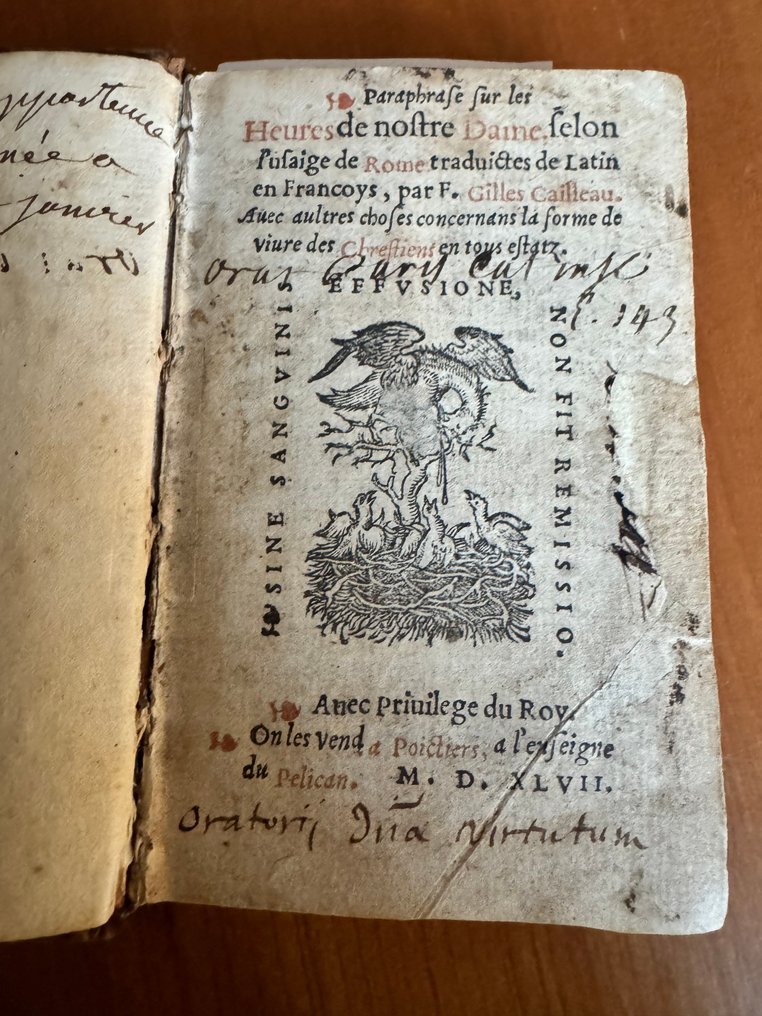 appartenne
née a
janvier
Paraphrase sur les
Heures de nostre Dame, selon
l'usaige de Rome traduictes de Latin
en Francoys, par F. Gilles Cailleau.
Auec aultres choses concernans la forme de
viure des Chrestiens en tous estatz.
Orat Paris Cat insc
EFFVSIONE,
143
SINE SANGVINIS
NON FIT REMISSIO.
Auec Priuilege du Roy.
On les vend a Poictiers, a l'enseigne
du Pelican. M. D. XLVII.
Oratorij virtutum